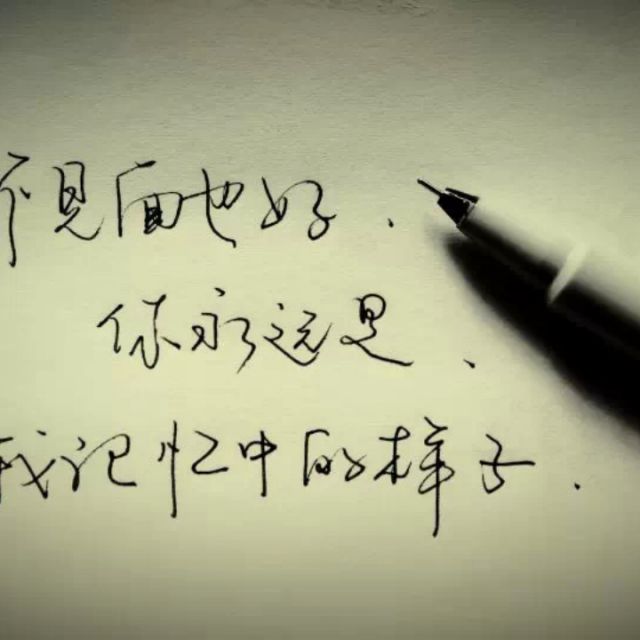 不见面也好.
你永远是、
我记忆中的样子.